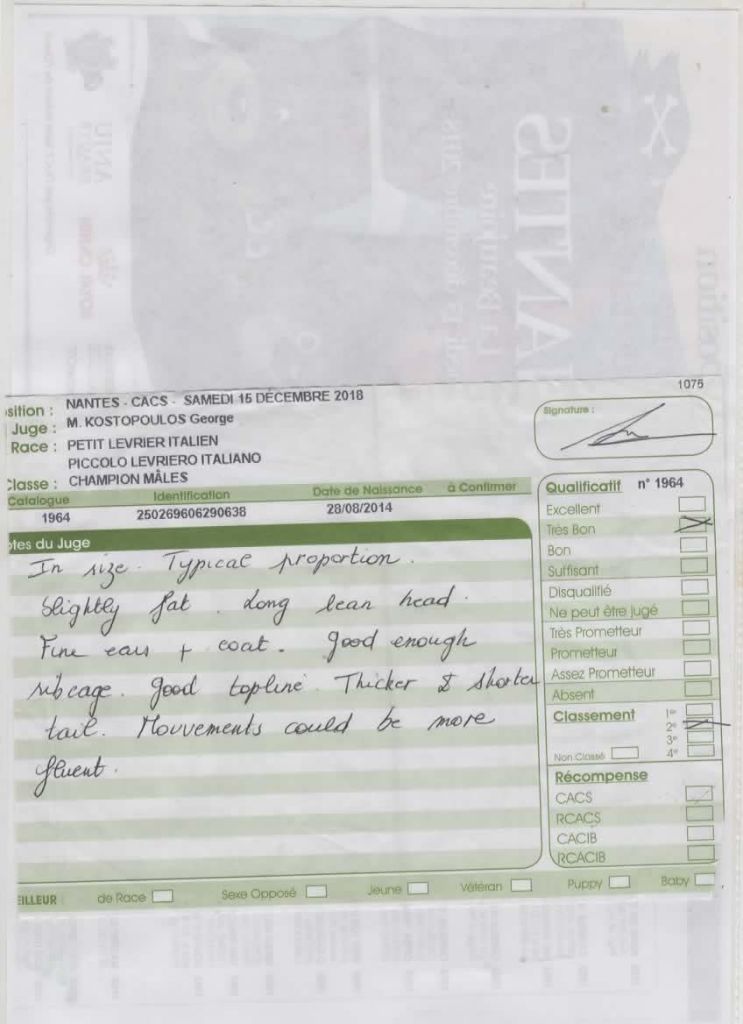 1075
NANTES - CACS - SAMEDI 15 DÉCEMBRE 2018
Juge : M. KOSTOPOULOS George
Race : PETIT LEVRIER ITALIEN
PICCOLO LEVRIERO ITALIANO
Classe : CHAMPION MÂLES
Signature :
Catalogue Identification Date de Naissance à Confirmer
1964 250269606290638 28/08/2014
du Juge
In size. Typical proportion.
Slightly fat. Long lean head.
Fine ears + coat. Good enough
ribcage. Good topline. Thicker & shorter
tail. Mouvements could be more
fluent.
Qualificatif n° 1964
Excellent
Très Bon
Bon
Suffisant
Disqualifié
Ne peut être jugé
Très Prometteur
Prometteur
Assez Prometteur
Absent
Classement 1er
2e
3e
Non Classé 4e
Récompense
CACS
RCACS
CACIB
RCACIB
de Race Sexe Opposé Jeune Vétéran Puppy Baby